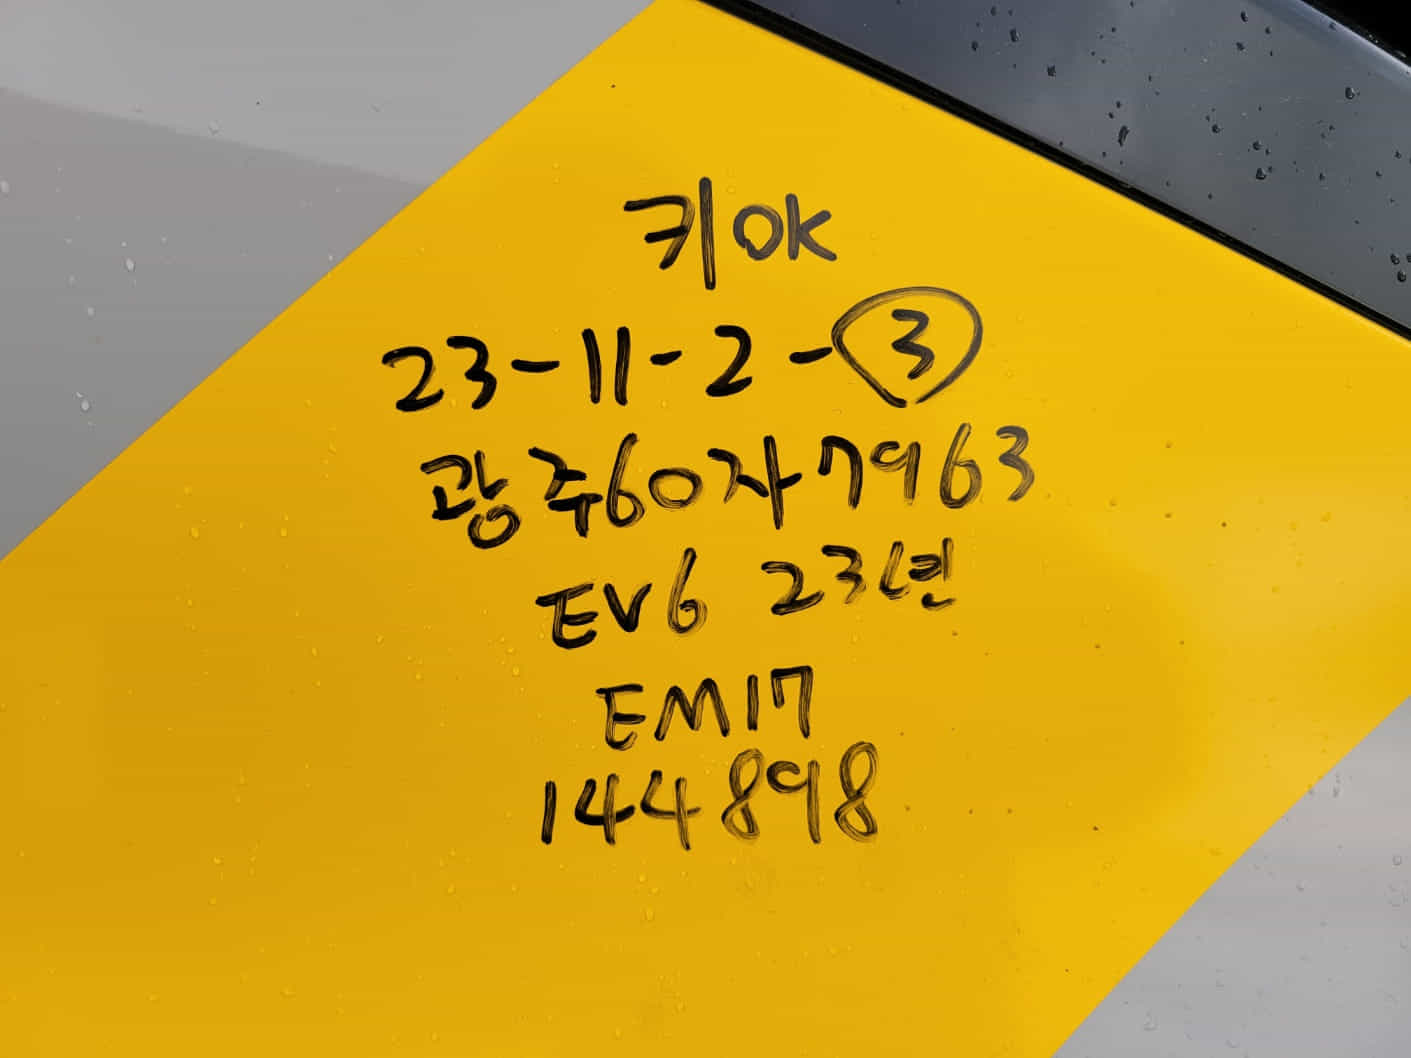 키OK
23-11-2-③
광주60자7963
EV6 23년
EM17
144898